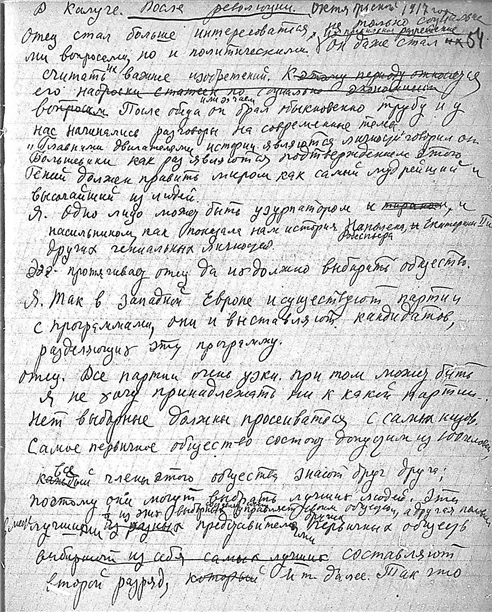 В Калуге. После революции. Октябрьской 1917 год
54
Отец стал больше интересоваться не только социальны
ми вопросами, но и политическими. Он даже стал их
считать важнее изобретений. К этому периоду относятся
его наброски статей по социально экономическим
вопросам. После обеда он брал обыкновенно трубу и у
нас начинались разговоры на современные темы
"Главными двигателями истории являются личности" говорил он
Большевики как раз являются подтверждением этого
Гений должен править миром как самый мудрейший и
высочайший из людей.
Я. Одно лицо может быть узурпатором и тираном, и
насильником, как показала нам история Наполеона, Екатерины II и
других гениальных личностей
протягивал отец да но должно выбирать общество.
Я. Так в западной Европе и существуют партии
с программами, они и выставляют кандидатов,
разделяющих эту программу.
отец. Все партии очень узки. при том может быть
я не хочу принадлежать ни к какой партии.
Нет выборные должны просеиваться с самых низов.
Самое первичное общество состоит допустим из 100 человек
все
каждый члены этого общества знают друг друга;
поэтому они могут выбрать лучших людей. Эти
из этих выборных управляет своим обществ, а другая
лучшими из разных представителями первичных обществ
выбирают из себя самых лучших составляют
второй разряд, который и т. далее. Так что